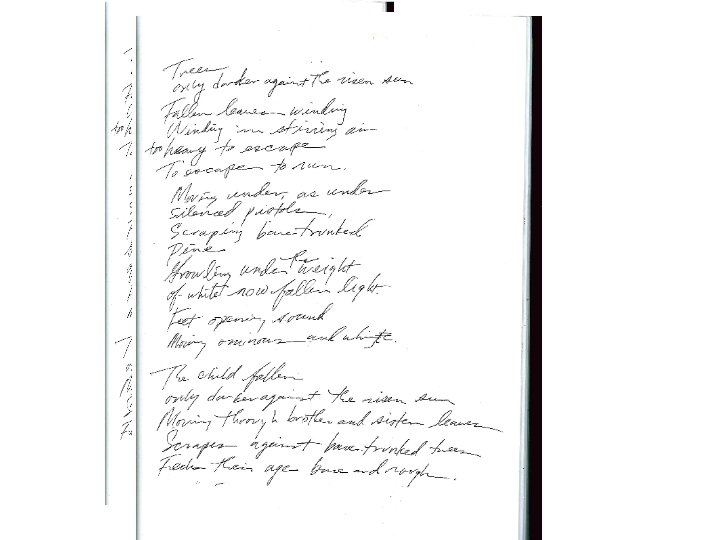 Trees
only darker against the risen sun
Fallen leaves winding
Winding in stirring air
too heavy to escape
To escape to run.
Moving under, as under
silenced pistols,
Scraping bare-trunked
Pine
Growling under the weight
of white now fallen light.
Feet opening sound
Moving ominous and white.
The child fallen
only darker against the risen sun
Moving through brother and sister leaves
Scrapes against bare-trunked trees
Feels their age bare and rough.